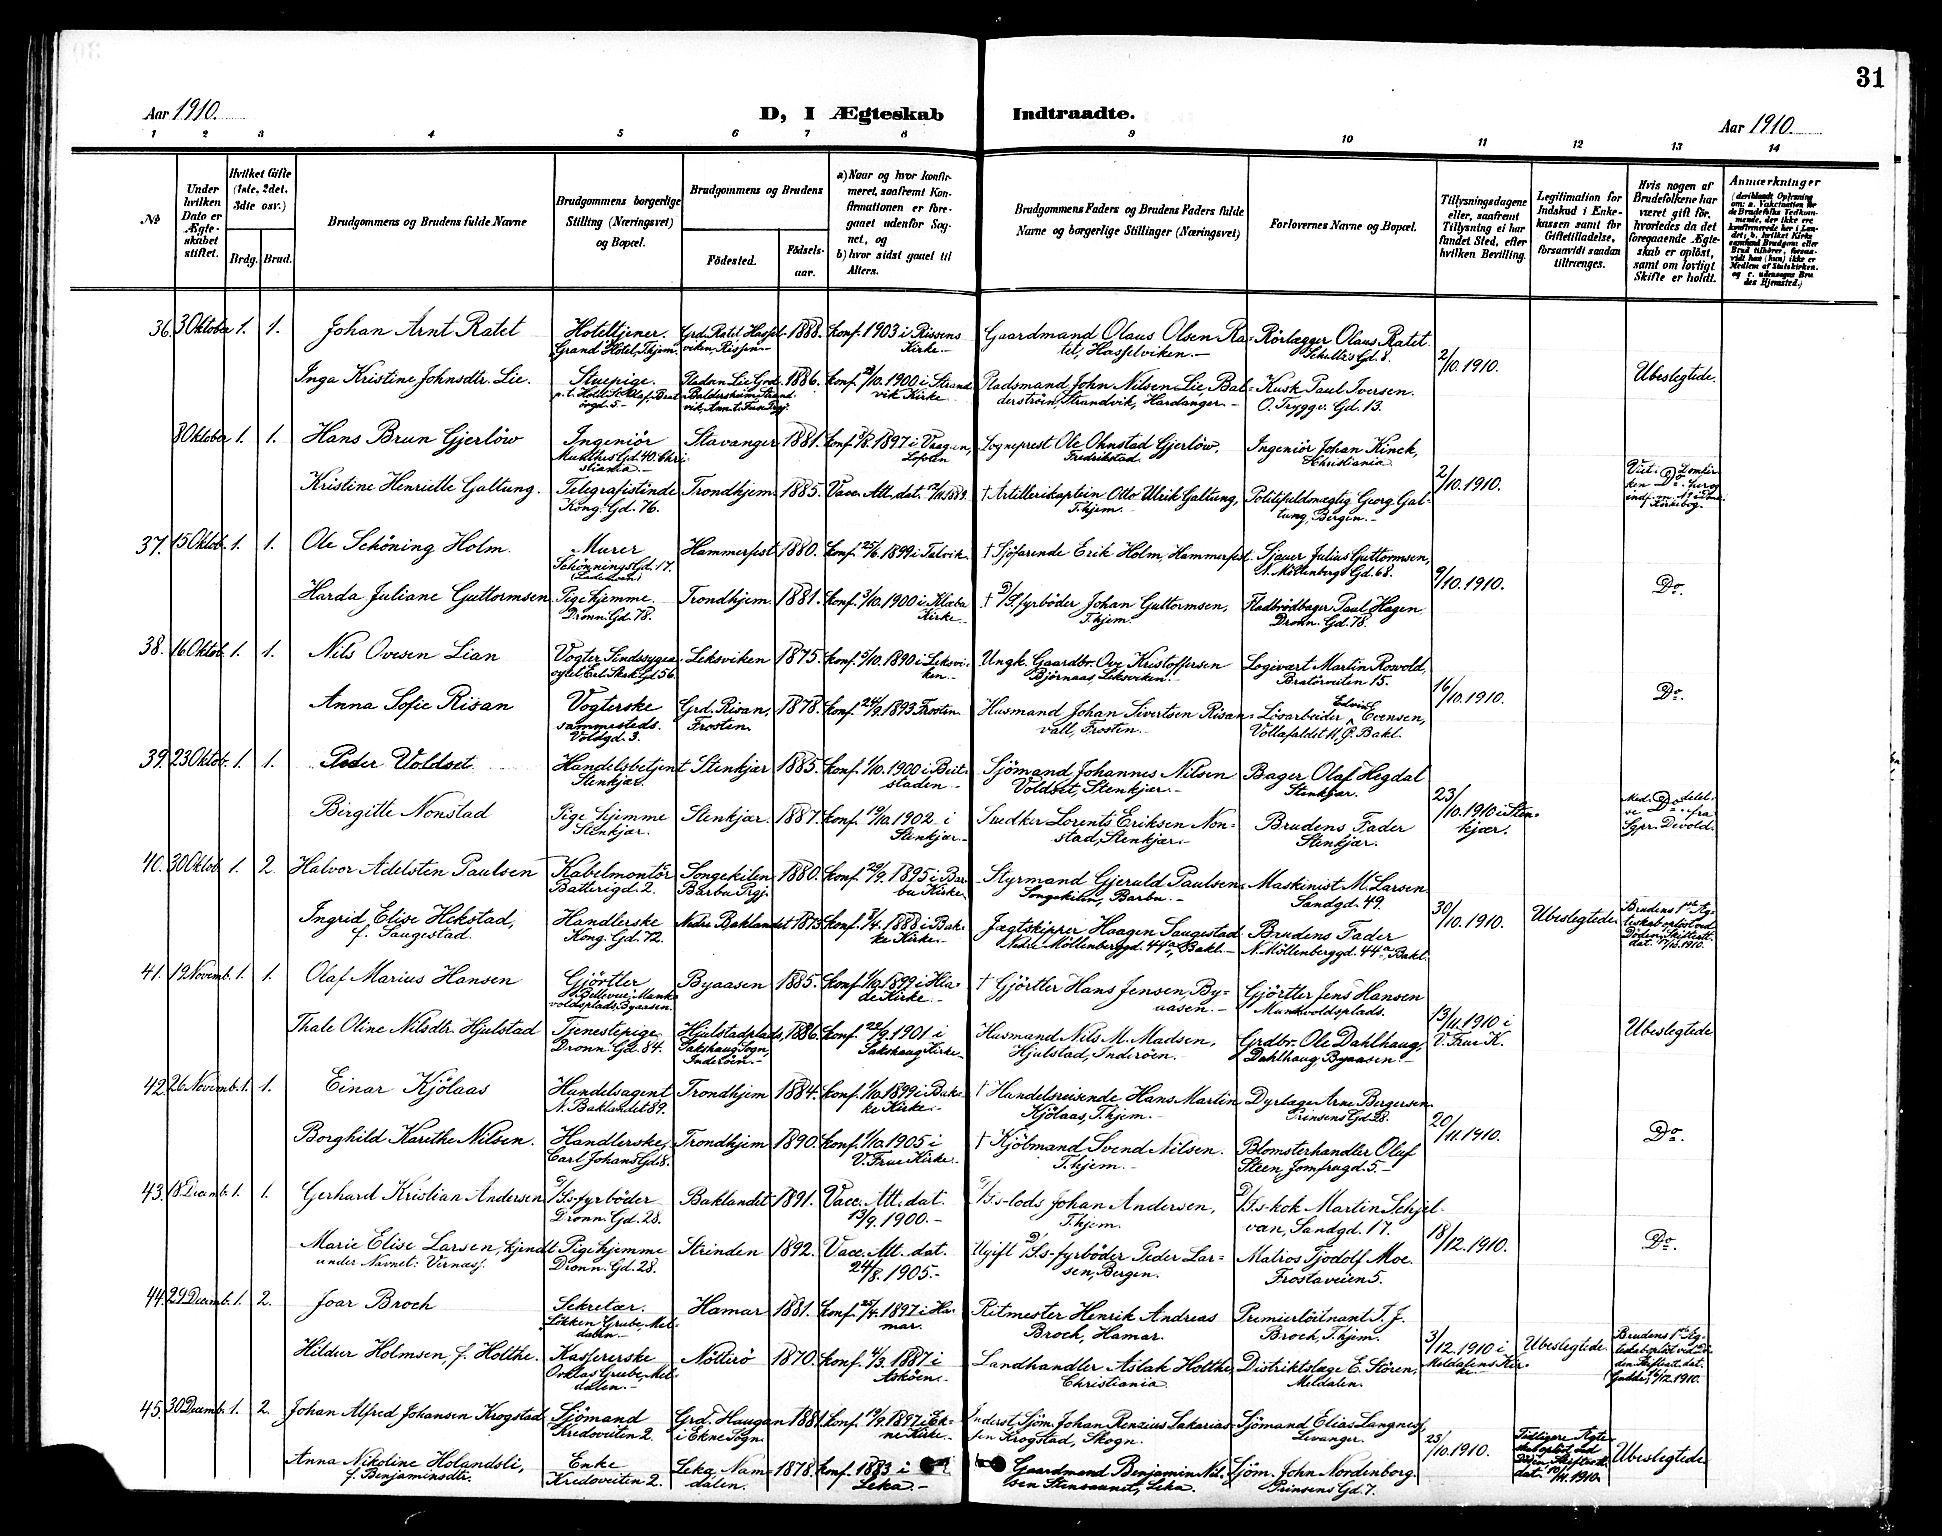 31
Aar 1910.
D, I Ægteskab Indtraadte.
Aar 1910.
1 2 3 4 5 6 7 8 9 10 11 12 13 14
No
Under hvilken Dato er Ægteskabet stiftet.
Hvilket Gifte (1ste, 2det, 3die osv.)
Brdg. Brud.
Brudgommens og Brudens fulde Navne
Brudgommens borgerlige Stilling (Næringsvei) og Bopæl.
Brudgommens og Brudens
Fødested.
Fødselsaar.
a) Naar og hvor konfirmeret, saafremt Konfirmationen er foregaaet udenfor Sognet, og
b) hvor sidst gaaet til Alters.
Brudgommens Faders og Brudens Faders fulde Navne og borgerlige Stillinger (Næringsvei)
Forlovernes Navne og Bopæl.
Tillysningsdagene eller, saafremt Tillysning ei har fundet Sted, efter hvilken Bevilling.
Legitimation for Indskud i Enkekassen samt for Giftetilladelse, forsaavidt saadan tiltrænges.
Hvis nogen af Brudefolkene har været gift før, hvorledes da det foregaaende Ægteskab er opløst, samt om lovligt Skifte er holdt.
Anmærkninger
36. 3 Oktober 1. 1. Johan Arnt Ratet
Hoteltjener. Grand Hotel, Thjem.
Grd. Ratet Hasselviken, Rissen
1888. Konf. 1903 i Rissens Kirke
Gaardmand Olaus Olsen Ratet, Hasselviken.
Rörlægger Olaus Ratet. Schultz's Gd. 8.
2/10. 1910.
Inga Kristine Johnsdtr. Lie.
Stuepige.
1886. Konf. /10. 1900 i Strandvik Kirke
Pladsmand John Nilsen Lie, Balderströen, Strandvik, Hardanger.
Kusk Paul Iversen. O. Trygv. Gd. 13.
Ubeslegtede.
8 Oktober 1. 1. Hans Brun Gjerlöw
Ingeniör Munthes Gd. 40. Christiania
Stavanger 1881. Konf. 1897 i Vaagen, Lofoten
Sogneprest Ole Ohnstad Gjerlöw, Fredrikstad.
Ingeniör Johan Kinck, Christiania
2/10. 1910.
Kristine Henriette Galtung.
Telegrafistinde Kong. Gd. 76.
Trondhjem 1885. Vacc. Att. dat.
† Artillerikaptein Otto Ulrik Galtung, T.hjem.
Politifuldmægtig Georg Galtung, Bergen.
Do.
37. 15 Oktob. 1. 1. Ole Schöning Holm.
Murer Schönnings Gd. 17. (Lademoen)
Hammerfest 1880. Konf. 25/6. 1899 i Talvik
† Sjöfarende Erik Holm, Hammerfest.
Sjauer Julius Guttormsen, N. Möllenbergs Gd. 68.
9/10. 1910.
Harda Juliane Guttormsen
Pige hjemme. Dronn. Gd. 78.
Trondhjem. 1881. Konf. /10. 1900 i Klæbu Kirke
† D/S. fyrböder Johan Guttormsen, T.hjem.
Fladbrödbager Paul Hagen. Dronn. Gd. 78.
Do.
38. 16 Oktob. 1. 1. Nils Ovesen Lian
Vogter Sindssygeasylet Erl. Skak. Gd. 56.
Leksviken 1875. Konf. 5/10. 1890 i Leksviken.
Ungk. Gaardbr. Ove Kristoffersen Björnaas, Leksviken.
Logivært Martin Rowold, Bratörveiten 15.
16/10. 1910.
Anna Sofie Risan
Vogterske sammesteds. Voldgd. 3.
Grd. Risan, Frosten. 1878. Konf. 24/9. 1893 Frosten.
Husmand Johan Sivertsen Risanvall, Frosten.
Lösarbeider Edvin Evensen, Vollafaldet 11, P. Bakl.
Do.
39. 23 Oktob. 1. 1. Peder Voldset
Handelsbetjent Stenkjær.
Stenkjær 1885. Konf. 1/10. 1900 i Beitstaden
Sjömand Johannes Nilsen Voldset, Stenkjær.
Bager Olaf Hegdal Stenkjær.
23/10. 1910 i Stenkjær.
Birgitte Nonstad
Pige hjemme Stenkjær.
Stenkjær. 1887. Konf. 19/10. 1902 i Stenkjær.
Snedker Lorents Eriksen Nonstad, Stenkjær.
Brudens Fader Stenkjær.
Do.
Med.delelse fra Sgpr. Devold.
40. 30 Oktob. 1. 2. Halvor Adelsten Paulsen
Kabelmontör Batterigd. 2.
Songekilen Barbu Prgj. 1880. Konf. 29/9. 1895 i Barbu Kirke
Styrmand Gjeruld Paulsen Songekilen, Barbu.
Maskinist M. Larsen Sandgd. 49.
30/10. 1910.
Ubeslegtede
Ingrid Elise Hekstad, f. Saugestad.
Handlerske Kong. Gd. 72.
Nedre Baklandet 1873. Konf. /4. 1888 i Bakke Kirke.
Jægtskipper Haagen Saugestad Nedre Möllenberggd. 44a, Bakl.
Brudens Fader N. Möllenberggd. 44a Bakl.
Brudens 1ste Ægteskab oplöst ved Döden. Skifteatt. dat. /10. 1910.
41. 12 Novemb. 1. 1. Olaf Marius Hansen
Gjörtler Bellevue, Munkvoldsplads, Byaasen.
Byaasen 1885. Konf. 1/10. 1899 i Hlade Kirke
† Gjörtler Hans Jensen, Byaasen.
Gjörtler Jens Hansen Munkvoldsplads.
13/11. 1910 i V. Frue K.
Thale Oline Nilsdtr. Hjulstad
Tjenestepige Dronn. Gd. 84.
Hjulstadplads, Sakshaug Sogn, Inderöen
1886. Konf. 22/9. 1901 i Sakshaug Kirke
Husmand Nils M. Madsen, Hjulstad, Inderöen.
Grdbr. Ole Dahlhaug, Dahlhaug, Byaasen
Ubeslegtede
42. 26 Novemb. 1. 1. Einar Kjölaas
Handelsagent N. Baklandet 89.
Trondhjem 1884. Konf. 1/10. 1899 i Bakke Kirke.
† Handelsreisende Hans Martin Kjölaas, T.hjem.
Dyrlæge Arne Bergersen. Prinsens Gd. 28.
20/11. 1910.
Borghild Karethe Nilsen.
Handlerske, Carl Johans Gd. 8.
Trondhjem 1890. Konf. 1/10. 1905 i V. Frue Kirke
† Kjöbmand Svend Nilsen. T.hjem.
Blomsterhandler Oluf Steen, Jomfrugd. 5.
Do.
43. 18 Decemb. 1. 1. Gerhard Kristian Andersen
D/S.s-fyrböder Dronn. Gd. 28.
Baklandet 1891. Vacc. Att. dat. 13/9. 1900.
D/S.s-lods Johan Andersen, T.hjem.
D/S.s-kok Martin Schjelvan, Sandgd. 17.
18/12. 1910.
Marie Elise Larsen, kjendt under Navnet: Vernæss.
Pige hjemme Dronn. Gd. 28.
Strinden 1892. Vacc. Att. dat. 24/8. 1905.
Ugift D/S.s-fyrböder Peder Larsen, Bergen.
Matros Tjodolf Moe. Frostaveien 5.
Do.
44. 29 Decemb. 1. 2. Joar Broch
Sekretær. Lökken Grube, Meldalen
Hamar 1881. Konf. 25/4. 1897 i Hamar.
Ritmester Henrik Andreas Broch, Hamar.
Premierlöitnant T. J. Broch, T.hjem.
3/12. 1910 i Meldalens Kirke.
Ubeslegtede.
Hildur Holmsen, f. Holthe.
Kassererske Orklas Grube, Meldalen.
Nötterö 1870. Konf. 4/3. 1887 i Asköen.
Landhandler Aslak Holthe, Christiania.
Distriktslæge E. Stören, Meldalen.
45. 30 Decemb. 1. 2. Johan Alfred Johansen Krogstad
Sjömand Kredoveiten 2.
Grd. Haugan i Ekne Sogn. 1881. Konf. 19/9. 1897 i Ekne Kirke.
Inderst, Sjöm. Johan Renzius Sakariassen Krogstad, Skogn.
Sjömand Elias Langness, Levanger.
23/10. 1910.
Anna Nikoline Holandsli, f. Benjaminsdtr.
Enke Kredoveiten 2.
Leka, Namdalen. 1878. Konf. 1883 i Leka.
Gaardmand Benjamin Nilsen Stensaunet, Leka.
Sjöm. John Nordenborg. Prinsens Gd. 7.
Ubeslegtede